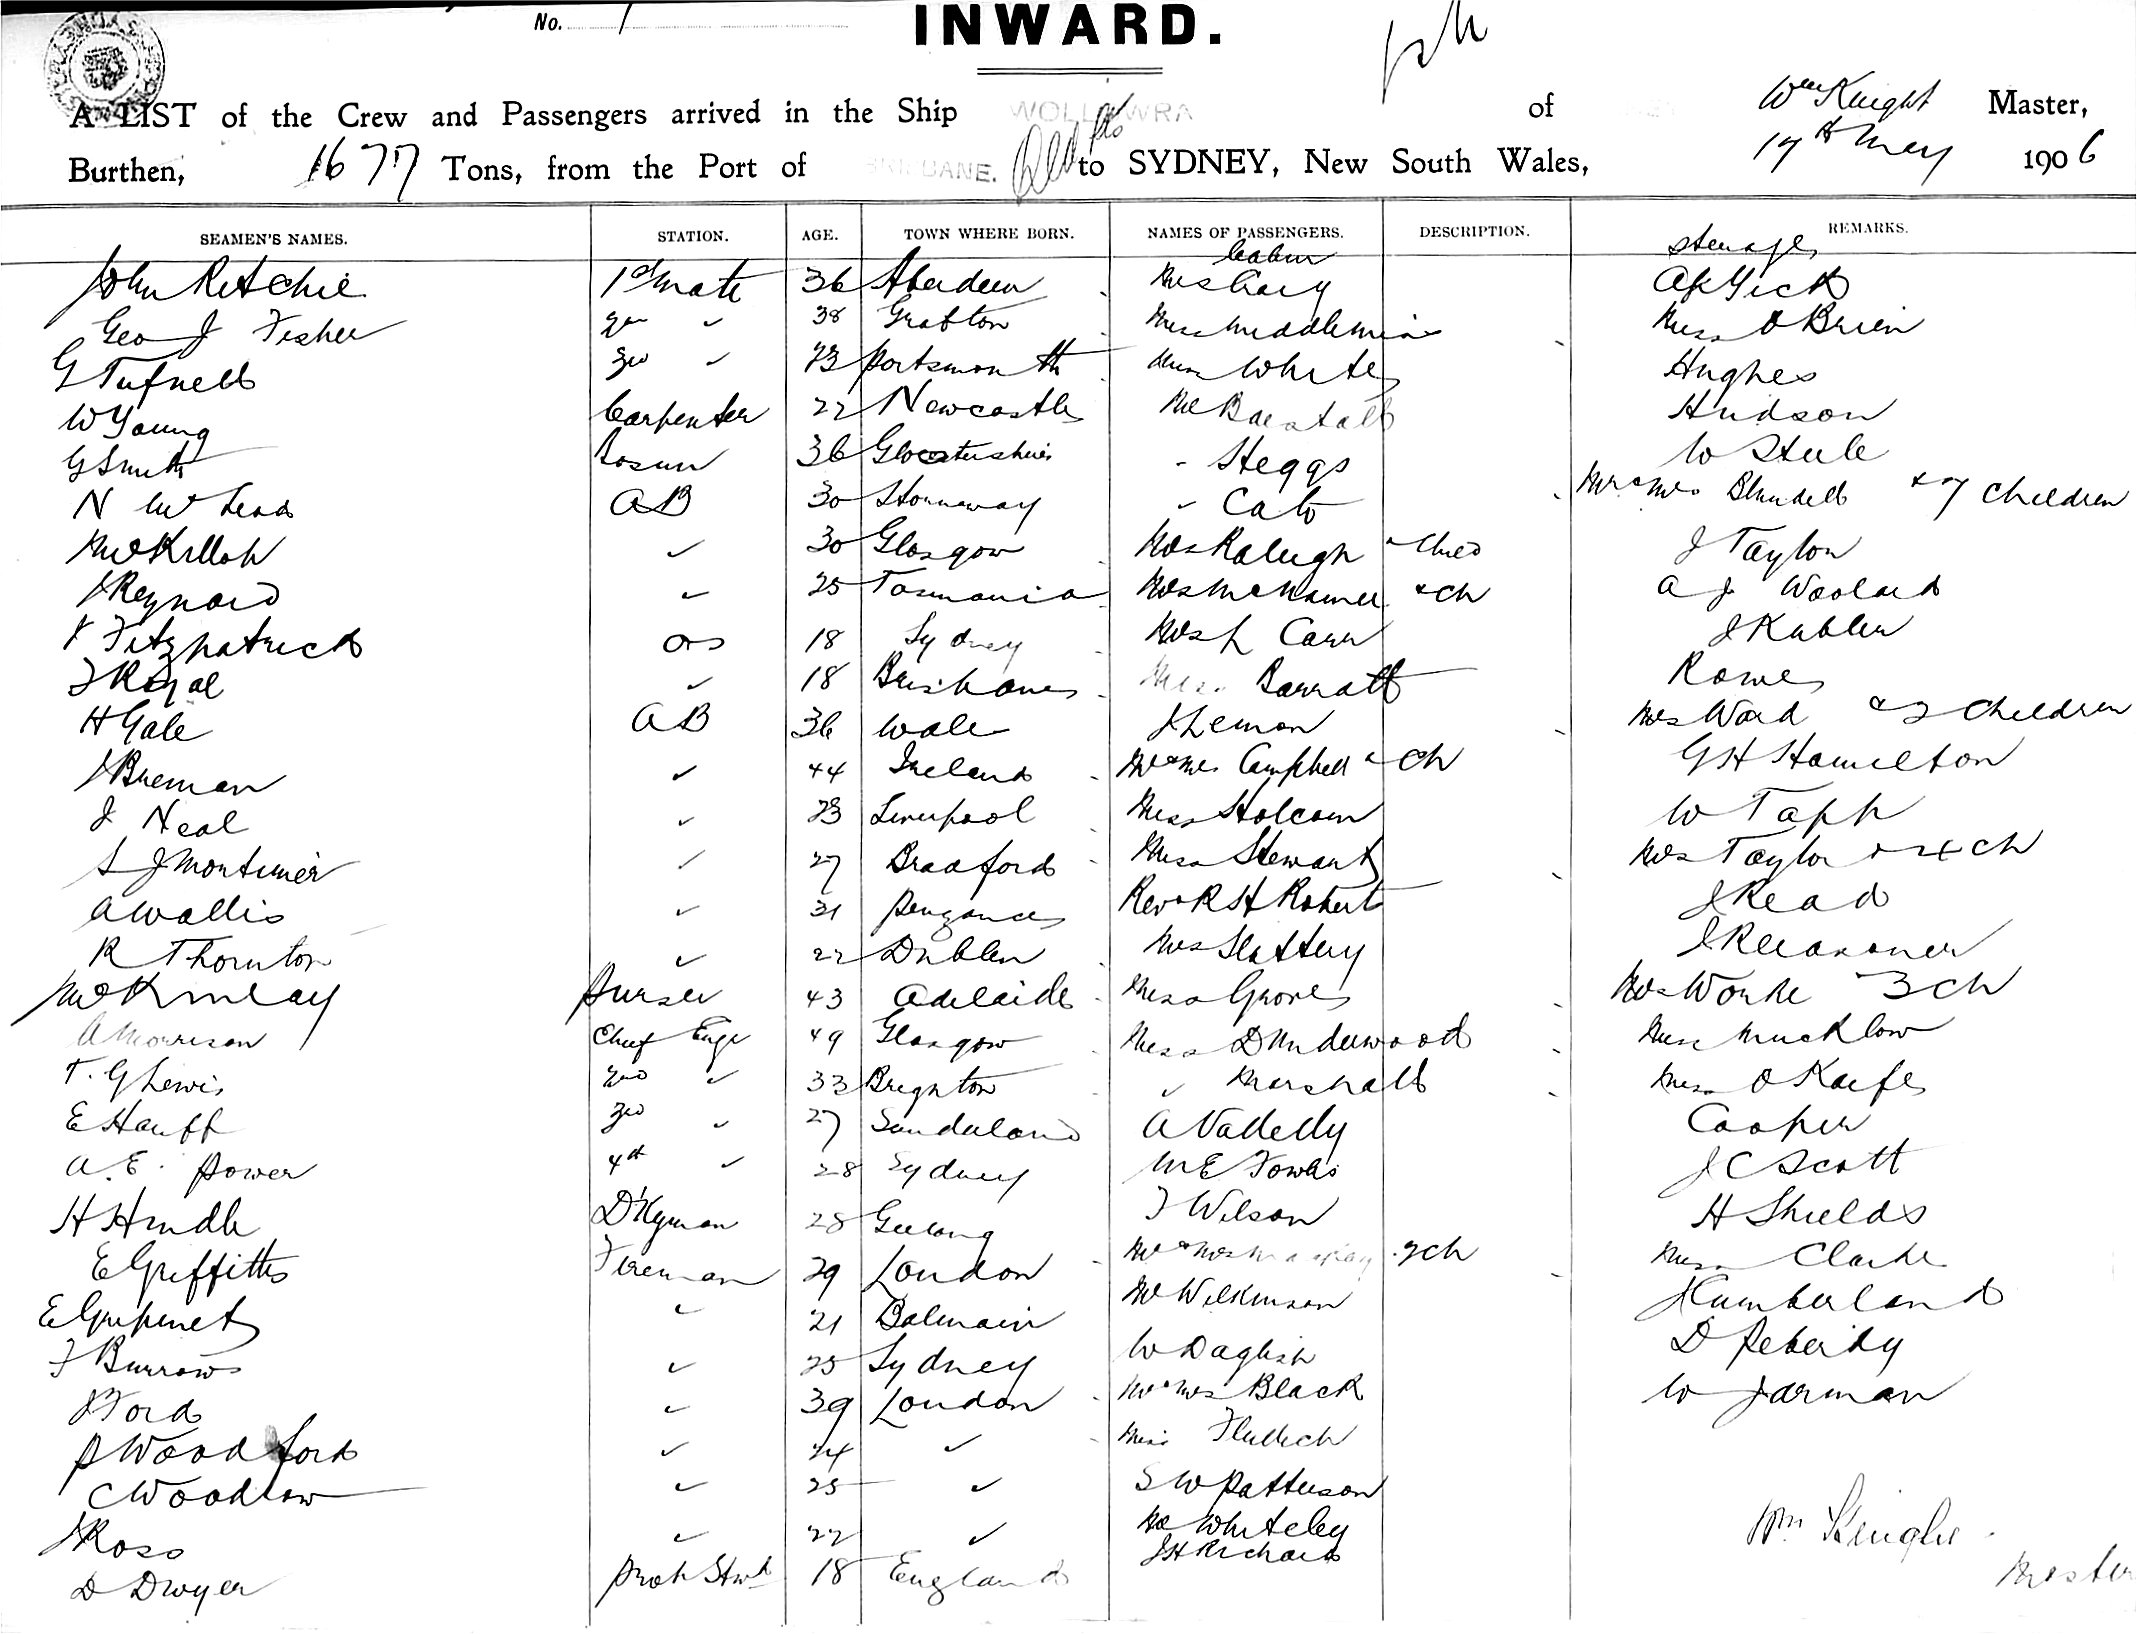 No. 1
INWARD.
A LIST of the Crew and Passengers arrived in the Ship WOLLOWRA of Wm Knight Master,
Burthen, 1677 Tons, from the Port of BRISBANE. to SYDNEY, New South Wales, 17th May 1906
SEAMEN'S NAMES. STATION. AGE. TOWN WHERE BORN. NAMES OF PASSENGERS. DESCRIPTION. REMARKS.
Cabin Steerage
John Ritchie 1st Mate 36 Aberdeen Mrs Gary
Geo J Fisher 2nd " 38 Grafton Miss Middlemis Miss O Brien
G Tufnell 3rd " 23 Portsmouth Miss White Hughes
W Young Carpenter 22 Newcastle Mr Hudson
G Smith Bosun 36 Glostershire - Steggs W Steele
N McLeod AB 30 Stornaway " Cato Mr & Mrs Blundell & 7 Children
McKillop " 30 Glasgow Mrs Raleigh & Child J Taylor
J Reynard " 25 Tasmania Mrs McNamee & Ch A J Woolard
F Fitzpatrick OS 18 Sydney Mrs L Carr J Kubler
J Royal " 18 Brisbane Miss Barratt Rowe
H Gale AB 36 Wale J Lemon Mrs Ward & 2 Children
J Brennan " 44 Ireland Mr & Mrs Campbell & Ch G H Hamilton
J Neal " 23 Liverpool Miss Holcom W Tapp
S J Mortimer " 27 Bradford Miss Stewart Mrs Taylor & 4 ch
A Wallis " 31 Penzance Rev R H Robert J Read
R Thornton " 22 Dublin Mrs Slattery
McKinlay Purser 43 Adelaide Miss Groves Mrs Worke 3 Ch
A Morrison Chief Engr 49 Glasgow Miss D Underwood Miss Mucklow
T. G Lewis 2nd " 33 Brighton " Marshall Miss O Kaefe
E Hauff 3rd " 27 Sunderland A Vallelly Cooper
A. E. Power 4th " 28 Sydney M E Fowles J C Scott
H Hindle D'Kyman 28 Geelong J Wilson H Shields
E Griffiths Fireman 29 London Mr & Mrs 2 ch Miss Clarke
E " 21 Balmain Mr Wilkinson J Cumberland
F Burrows " 25 Sydney W Daglish D Peberdy
J Ford " 39 London Mr & Mrs Black W Jarman
P Woodford " 24 " Miss
C Woodlow " 25 " S W Patterson
J Ross " 22 " Mr Whiteley
D Dwyer Prov Stwd 18 England J H Richards
Wm Knight
Master